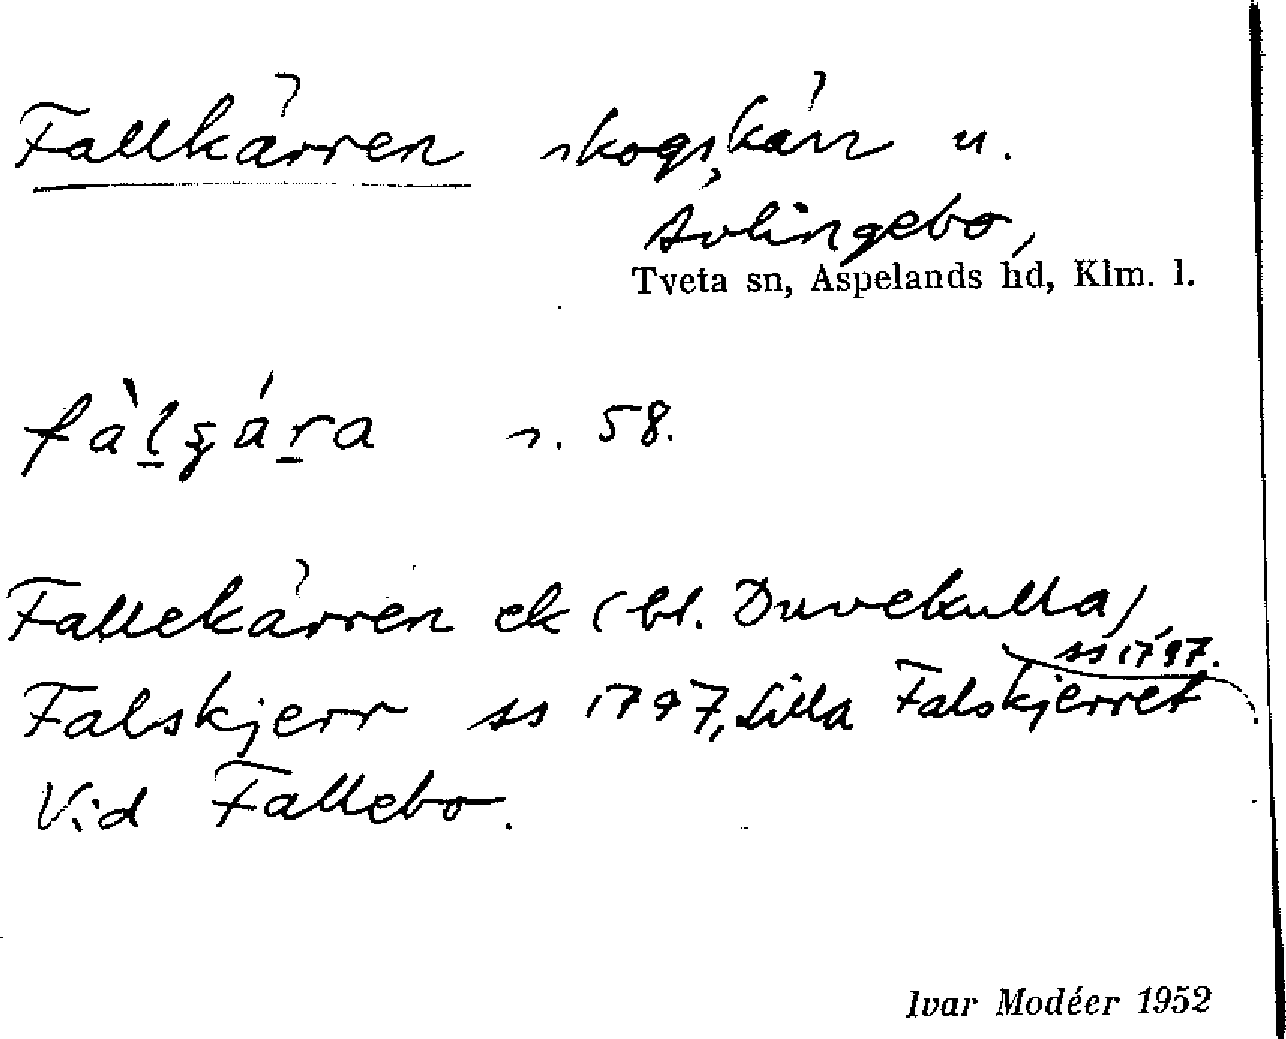 Fallkärren skogskärr u.
Avlingebo,
Tveta sn, Aspelands hd, Klm. l.
fàlʂára s. 58.
Fallekärren ek (bl. Duvekulla),
Falskjerr ss 1797, Lilla Falskjerret ss 1797.
Vid Fallebo.
Ivar Modéer 1952